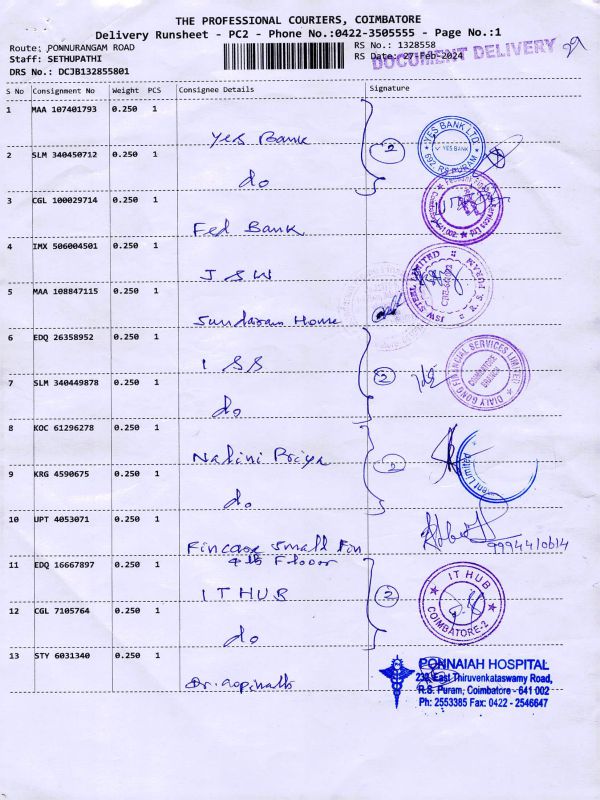 THE PROFESSIONAL COURIERS, COIMBATORE
Delivery Runsheet - PC2 - Phone No.:0422-3505555 - Page No.:1
Route: PONNURANGAM ROAD
Staff: SETHUPATHI
DRS No.: DCJB132855801
RS No.: 1328558
RS Date: 27-Feb-2024
DOCUMENT DELIVERY
S No Consignment No Weight PCS Consignee Details Signature
1 MAA 107401793 0.250 1
Yes Bank
2 SLM 340450712 0.250 1
do
3 CGL 100029714 0.250 1
Fed Bank
4 IMX 506004501 0.250 1
JSW
5 MAA 108847115 0.250 1
Sundaram Home
6 EDQ 26358952 0.250 1
ISS
7 SLM 340449878 0.250 1
do
8 KOC 61296278 0.250 1
Nalini Priya
9 KRG 4590675 0.250 1
do
10 UPT 4053071 0.250 1
Fincare Small Fin
4th Floor
11 EDQ 16667897 0.250 1
IT HUB
12 CGL 7105764 0.250 1
do
13 STY 6031340 0.250 1
Dr. Gopinath
YES BANK LTD
YES BANK
R.S PURAM
JSW STEEL LIMITED
2
FINANCIAL SERVICES LIMITED
COIMBATORE
BRANCH
2
IT HUB
COIMBATORE-2
PONNAIAH HOSPITAL
239, East Thiruvenkataswamy Road,
R.S. Puram, Coimbatore - 641 002
Ph: 2553385 Fax: 0422 - 2546647